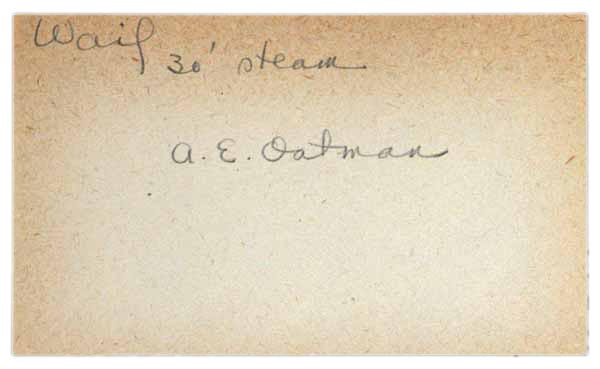 Waif
30' steam
A. E. Oatman